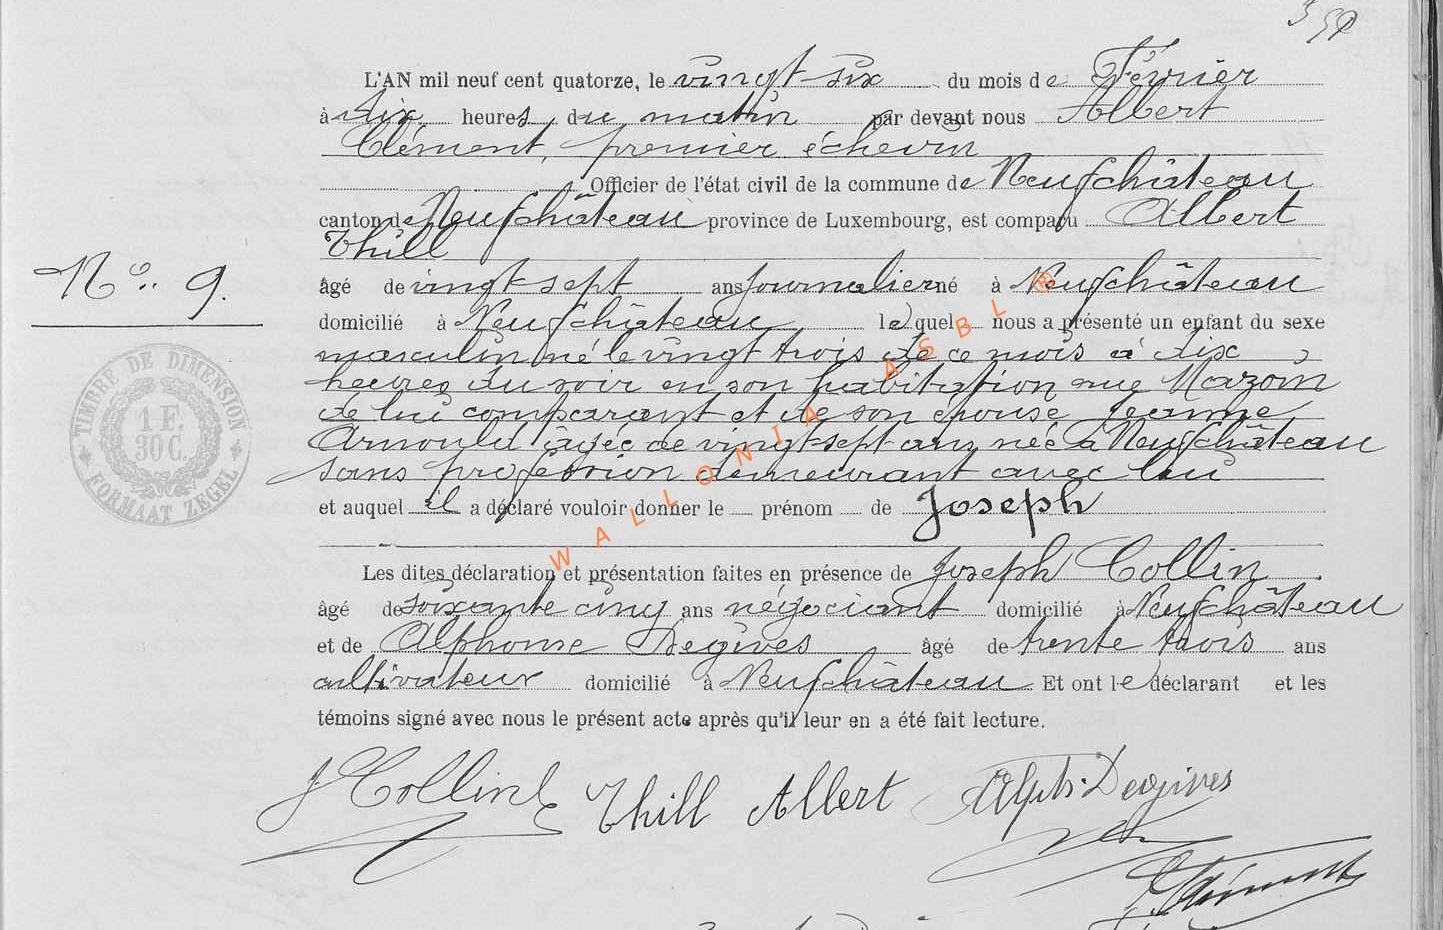 L'AN mil neuf cent quatorze, le vingt-six du mois de Février
à dix heures du matin par devant nous Albert
Clément, premier échevin
Officier de l'état civil de la commune de Neufchâteau
canton de Neufchâteau province de Luxembourg, est comparu Albert
Thill
âgé de vingt-sept ans journalier né à Neufchâteau
domicilié à Neufchâteau lequel nous a présenté un enfant du sexe
masculin né le vingt trois de ce mois à dix
heures du soir en son habitation rue Mazoin
de lui comparant et de son épouse Jeanne
Arnould âgée de vingt-sept ans née à Neufchâteau
sans profession demeurant avec lui
et auquel il a déclaré vouloir donner le prénom de Joseph
Les dites déclaration et présentation faites en présence de Joseph Collin
âgé de soixante cinq ans négociant domicilié à Neufchâteau
et de Alphonse Degives âgé de trente trois ans
cultivateur domicilié à Neufchâteau. Et ont le déclarant et les
témoins signé avec nous le présent acte après qu'il leur en a été fait lecture.
N° 9.
TIMBRE DE DIMENSION
1 F. 30 C.
FORMAAT ZEGEL
J Collin Thill Albert Alph. Degives
Clément
WALLONIA ASBL ®